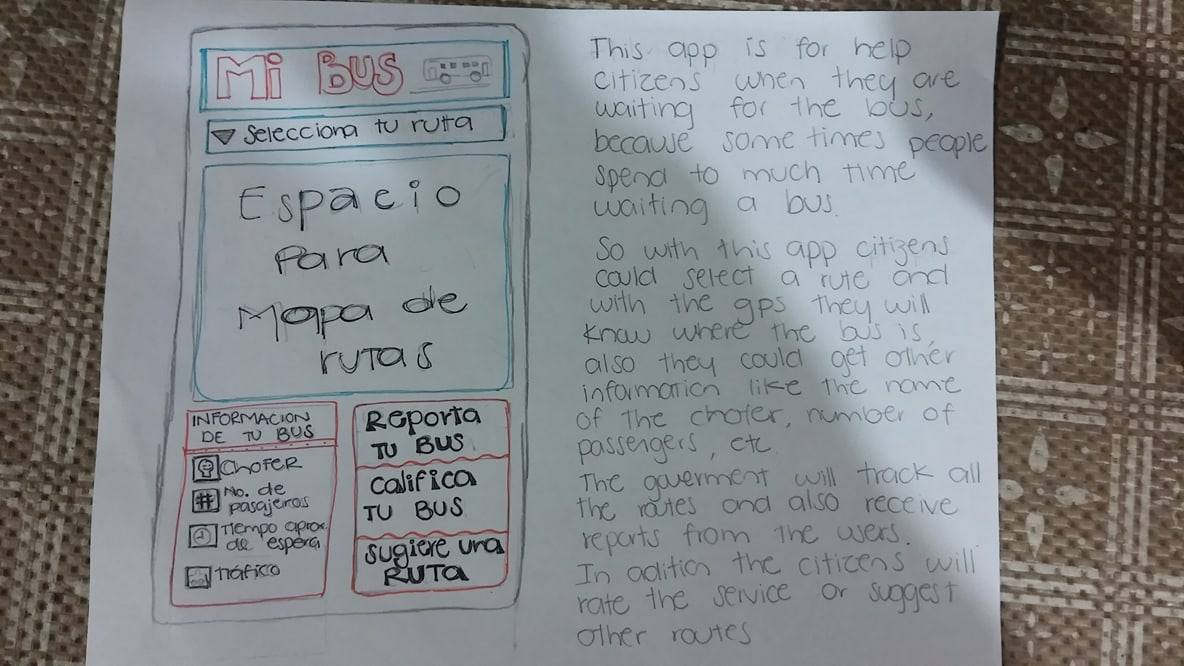 Mi BUS
Selecciona tu ruta
Espacio
Para
Mapa de
rutas
INFORMACION
DE TU BUS
CHOFER
No. de
pasajeros
Tiempo aprox.
de espera
Tráfico
Reporta
TU BUS
Califica
TU BUS
Sugiere una
RUTA
This app is for help
citizens when they are
waiting for the bus,
because some times people
spend to much time
waiting a bus.
So with this app citizens
could select a rute and
with the gps they will
know where the bus is,
also they could get other
information like the name
of the chofer, number of
passengers, etc.
The goverment will track all
the routes and also receive
reports from the users.
In adition the citizens will
rate the service or suggest
other routes